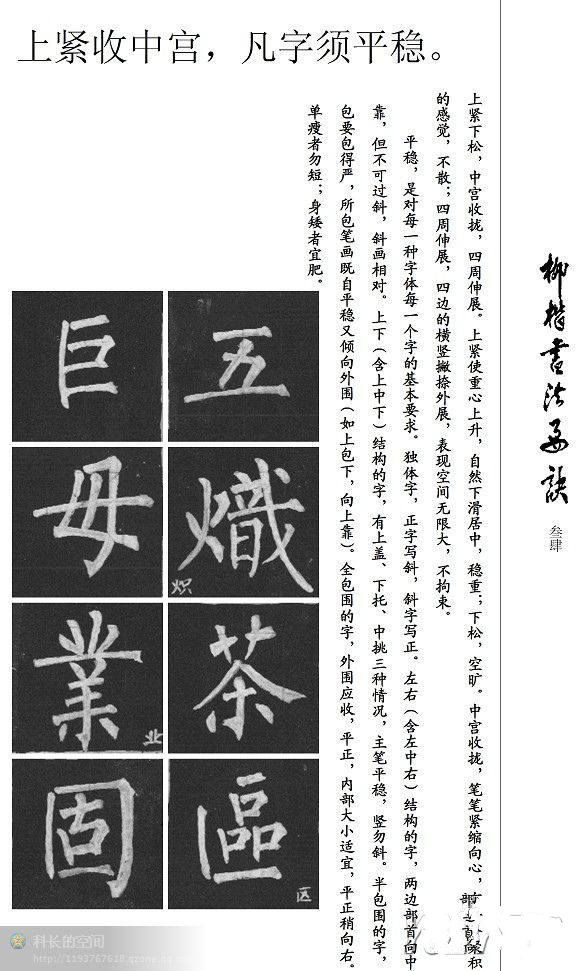 上紧收中宫，凡字须平稳。
柳楷书法要诀
叁肆
上紧下松，中宫收拢，四周伸展。上紧使重心上升，自然下滑居中，稳重；下松，空旷。中宫收拢，笔笔紧缩向心，
积
的感觉，不散；四周伸展，四边的横竖撇捺外展，表现空间无限大，不拘束。
平稳，是对每一种字体每一个字的基本要求。独体字，正字写斜，斜字写正。左右（含左中右）结构的字，两边部首向中
靠，但不可过斜，斜画相对。上下（含上中下）结构的字，有上盖、下托、中挑三种情况，主笔平稳，竖勿斜。半包围的字，
包要包得严，所包笔画既自平稳又倾向外围（如上包下，向上靠）。全包围的字，外围应收，平正，内部大小适宜，平正稍向右。
单瘦者勿短；身矮者宜肥。
五
熾
炽
茶
區
区
巨
毋
業
业
固
科长的空间
http://1193767618.qzone.qq.com